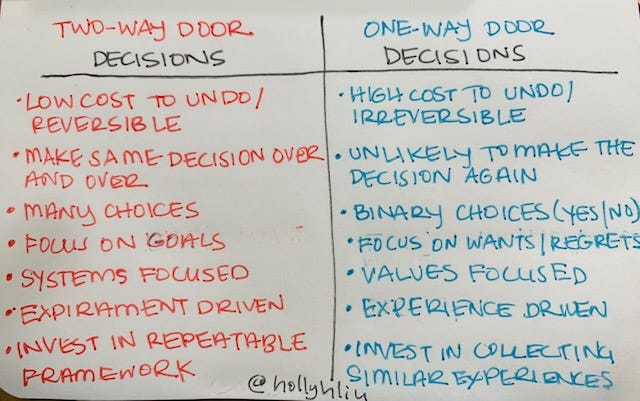 TWO-WAY DOOR
DECISIONS
• LOW COST TO UNDO/
REVERSIBLE
• MAKE SAME DECISION OVER
AND OVER
• MANY CHOICES
• FOCUS ON GOALS
• SYSTEMS FOCUSED
• EXPIRAMENT DRIVEN
• INVEST IN REPEATABLE
FRAMEWORK
ONE-WAY DOOR
DECISIONS
• HIGH COST TO UNDO/
IRREVERSIBLE
• UNLIKELY TO MAKE THE
DECISION AGAIN
• BINARY CHOICES (YES/NO)
• FOCUS ON WANTS/REGRETS
• VALUES FOCUSED
• EXPERIENCE DRIVEN
• INVEST IN COLLECTING
SIMILAR EXPERIENCES
@hollyhliu